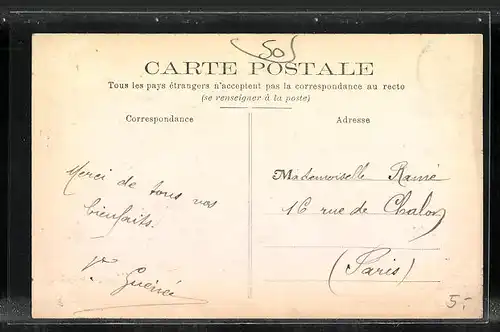 50
CARTE POSTALE
Tous les pays étrangers n'acceptent pas la correspondance au recto
(se renseigner à la poste)
Correspondance
Adresse
Merci de tous vos
bienfaits.
Mademoiselle Ramé
16 rue de Chalon
(Paris)
5.-